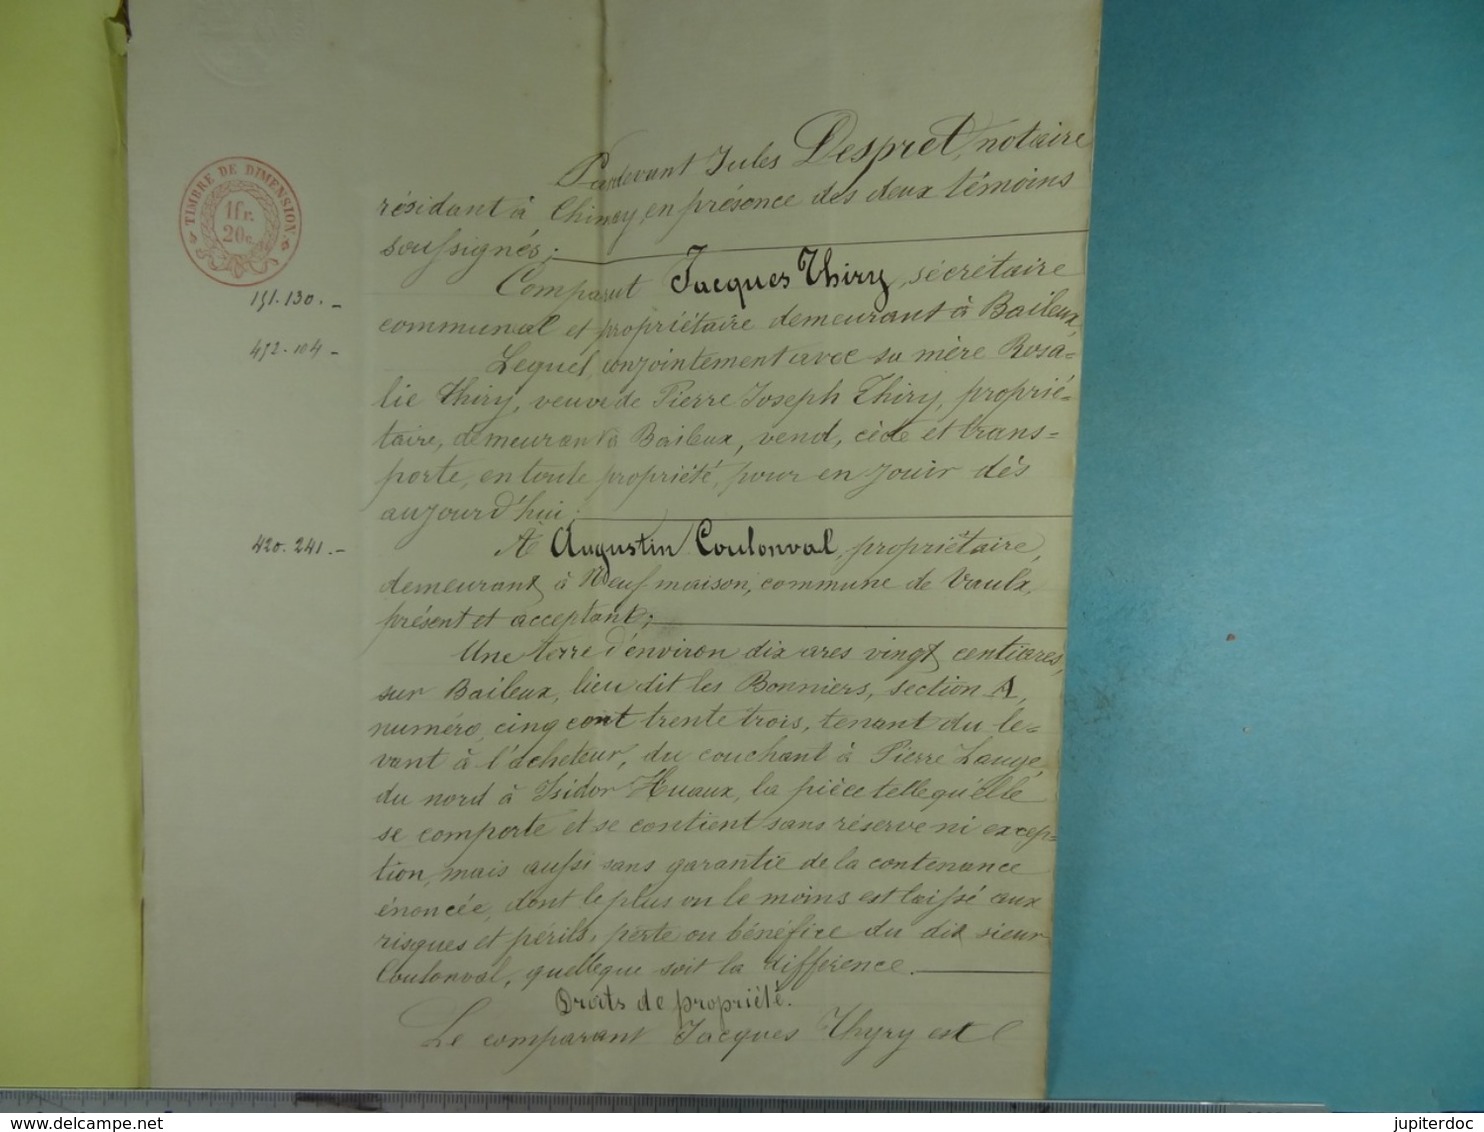 TIMBRE DE DIMENSION.
1fr.
20c.
Pardevant Jules Despret, notaire
résidant à Chimay, en présence des deux témoins
soussignés;
Comparut Jacques Thiry, sécrétaire
151.130.-
communal et propriétaire demeurant à Baileux,
452.104-
Lequel, conjointement avec sa mère Rosa-
lie Thiry, veuve de Pierre Joseph Thiry, proprié-
taire, demeurant à Baileux, vend, cède et trans-
porte, en toute propriété, pour en jouir dès
aujourd'hui:
420.241.-
À Augustin Coulonval, propriétaire,
demeurant à Neuf-maison, commune de Vaulx,
présent et acceptant;
Une terre d'environ dix ares vingt centiares,
sur Baileux, lieu dit les Bonniers, section A,
numéro, cinq cent trente trois, tenant du le-
vant à l'acheteur, du couchant à Pierre Lauge,
du nord à Isidor Huaux, la pièce telle qu'elle
se comporte et se contient sans réserve ni excep-
tion, mais aussi sans garantie de la contenance
énoncée, dont le plus ou le moins est laissé aux
risques et périls, perte ou bénéfice du dit sieur
Coulonval, quelleque soit la différence.
Droits de propriété.
Le comparant Jacques Thyry est
jupiterdoc
www.delcampe.net